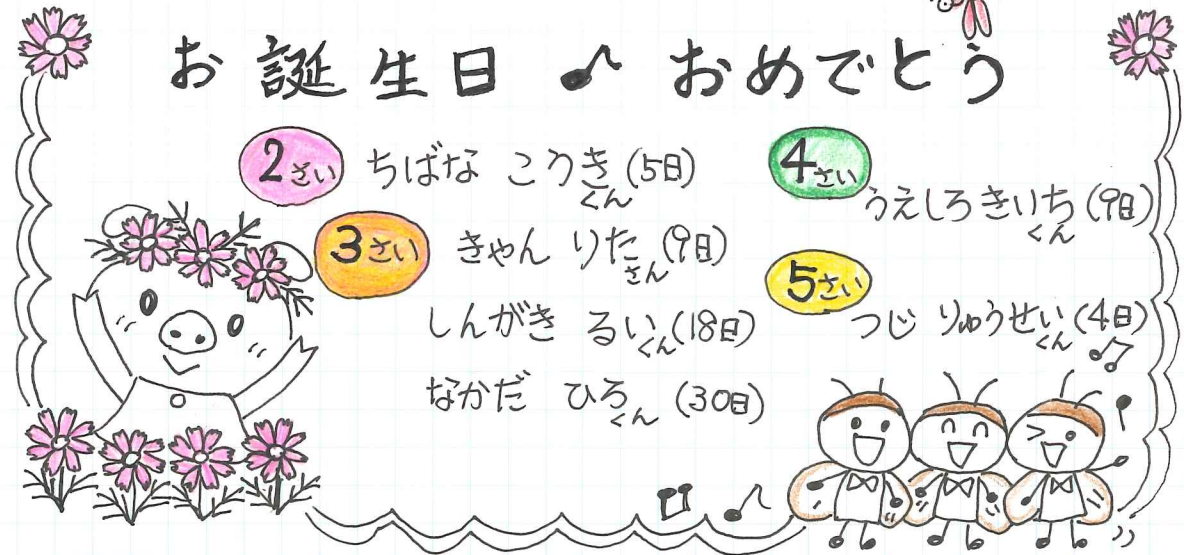 お誕生日♪おめでとう
2さい ちばな こうき くん (5日)
3さい きゃん りた さん (9日)
しんがき るい くん (18日)
なかだ ひろ くん (30日)
4さい
うえしろ きいち くん (9日)
5さい
つじ りゅうせい くん (4日)